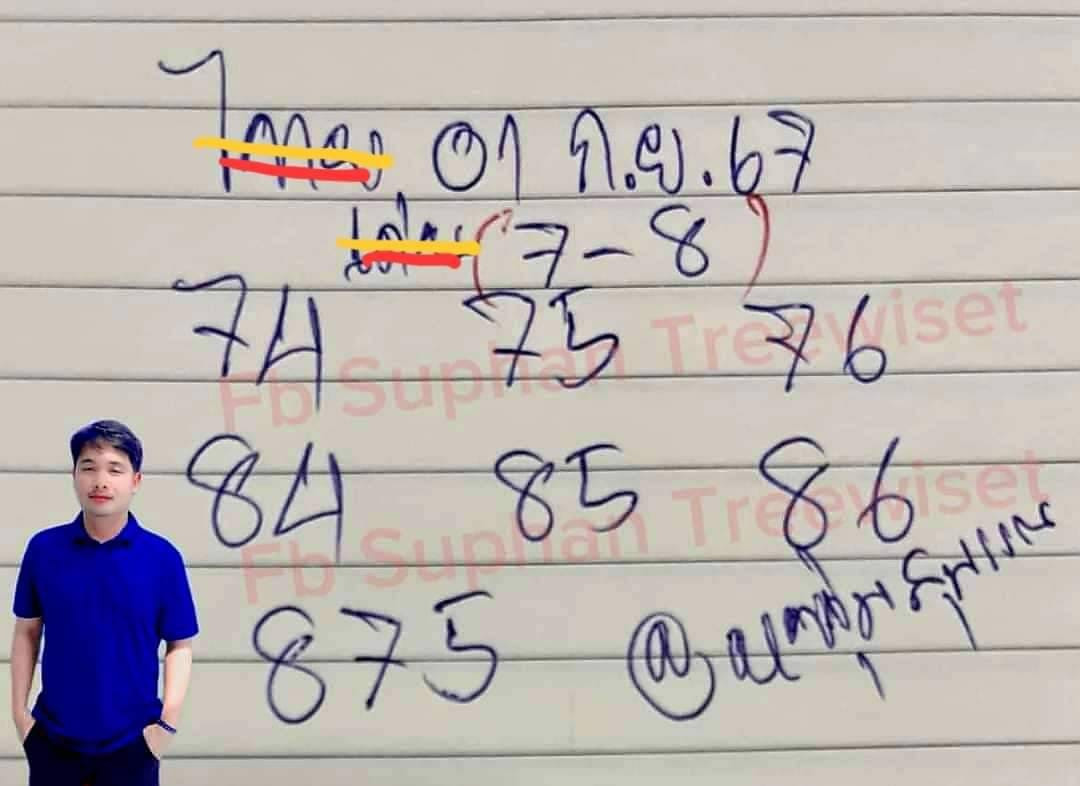 01 ก.ย. 67
(7-8)
74 75 76
84 85 86
875
Fb Suphan Treewiset
Fb Suphan Treewiset